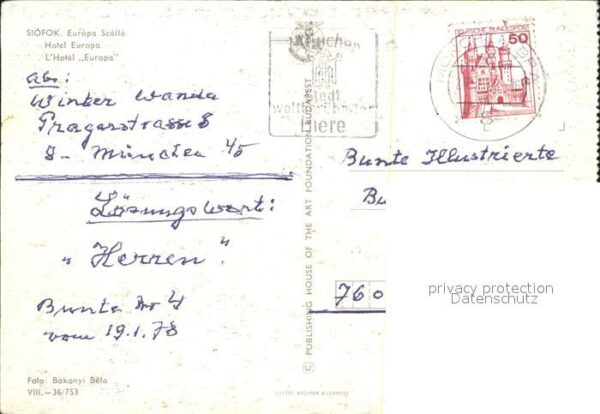 SIÓFOK. Európa Szálló
Hotel Europa
L'Hotel „Europa"
Abs:
Winter Wanda
Pragerstrasse 8
8- München 45
Lösungswort:
"Herren".
Bunte Nr 4
vom 19.1.78
Foto: Bakonyi Béla
VIII.—36/753
© PUBLISHING HOUSE OF THE ART FOUNDATION BUDAPEST
München
Stadt
Tiere
DEUTSCHE BUNDESPOST
50
Bunte Illustrierte
Bu
760
privacy protection
Datenschutz